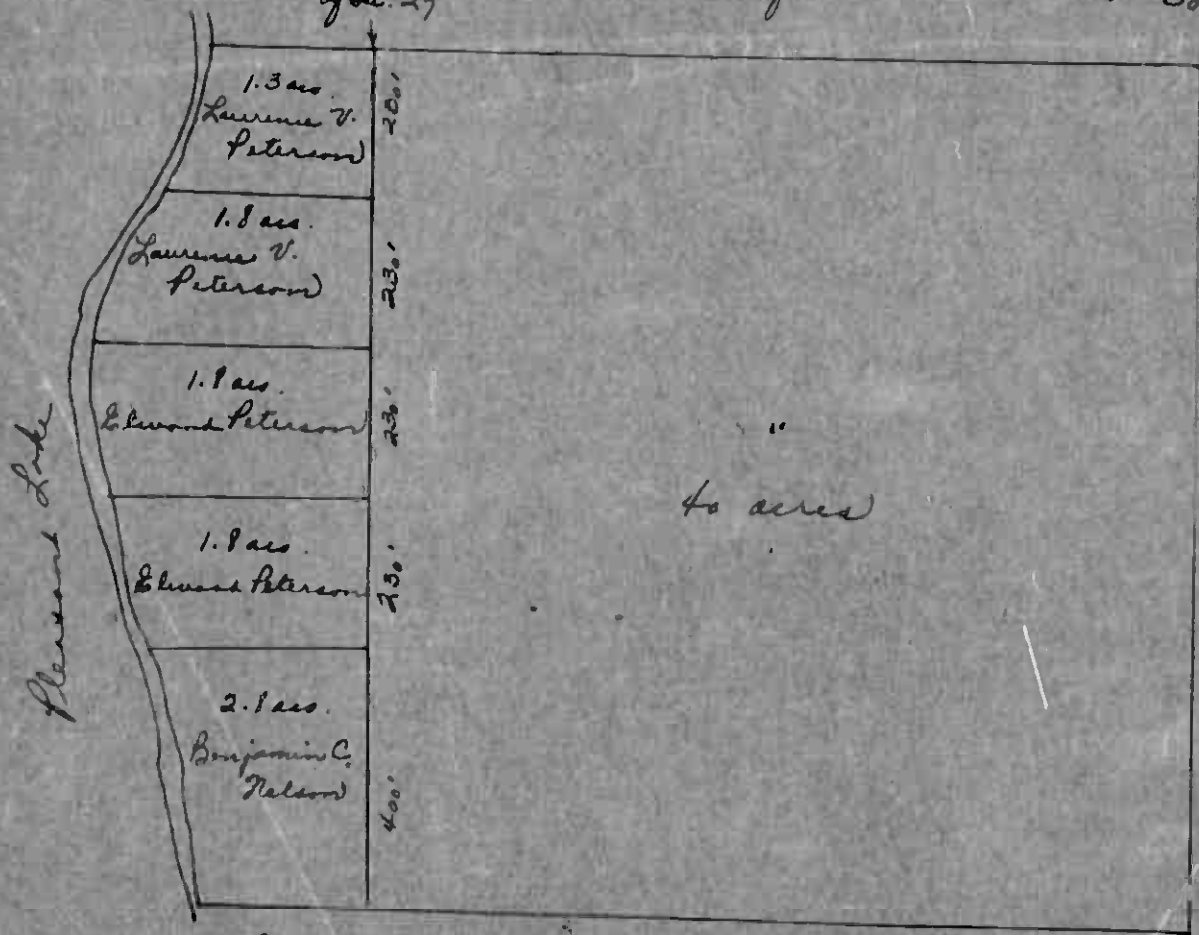 of Sec. 27
1.3 acs.
Laurence V.
Peterson
200'
1.8 acs.
Laurence V.
Peterson
230'
1.8 acs.
Elwood Peterson
230'
1.8 acs.
Elwood Peterson
230'
2.8 acs.
Benjamin C.
Nelson
400'
Pleasant Lake
"
40 acres